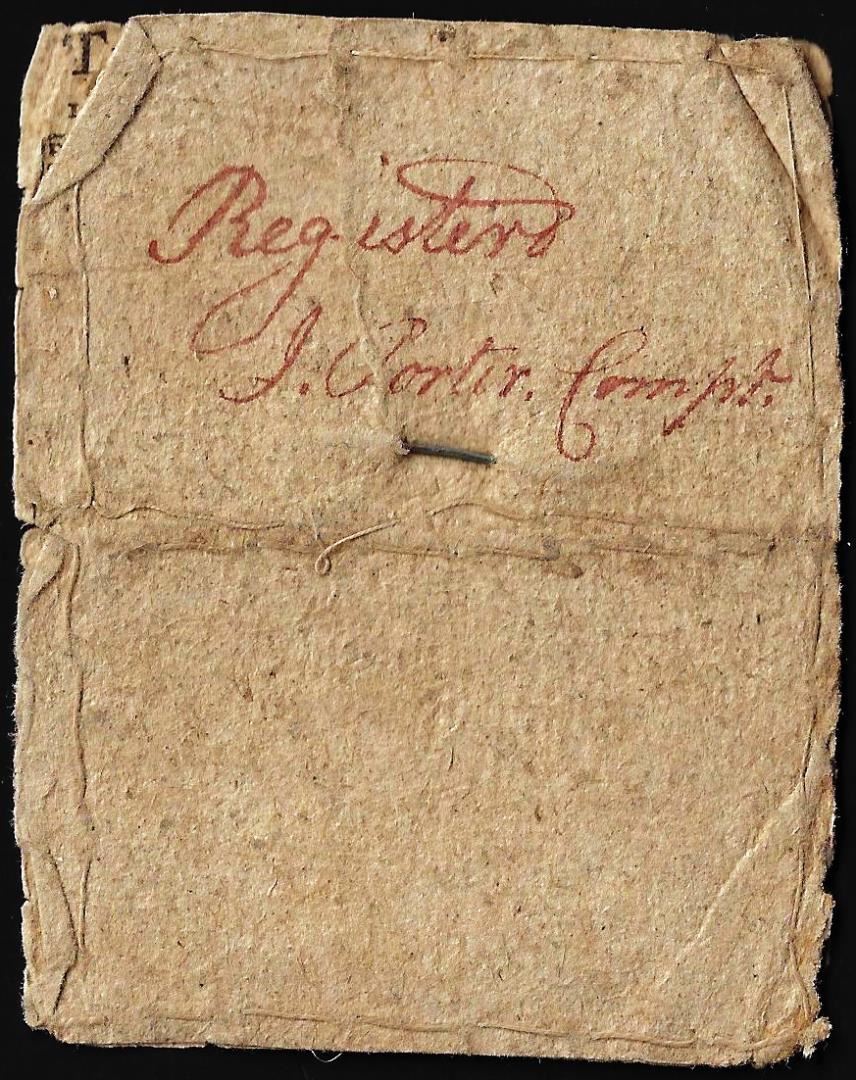 T
Registerd
J. Porter. Compt.